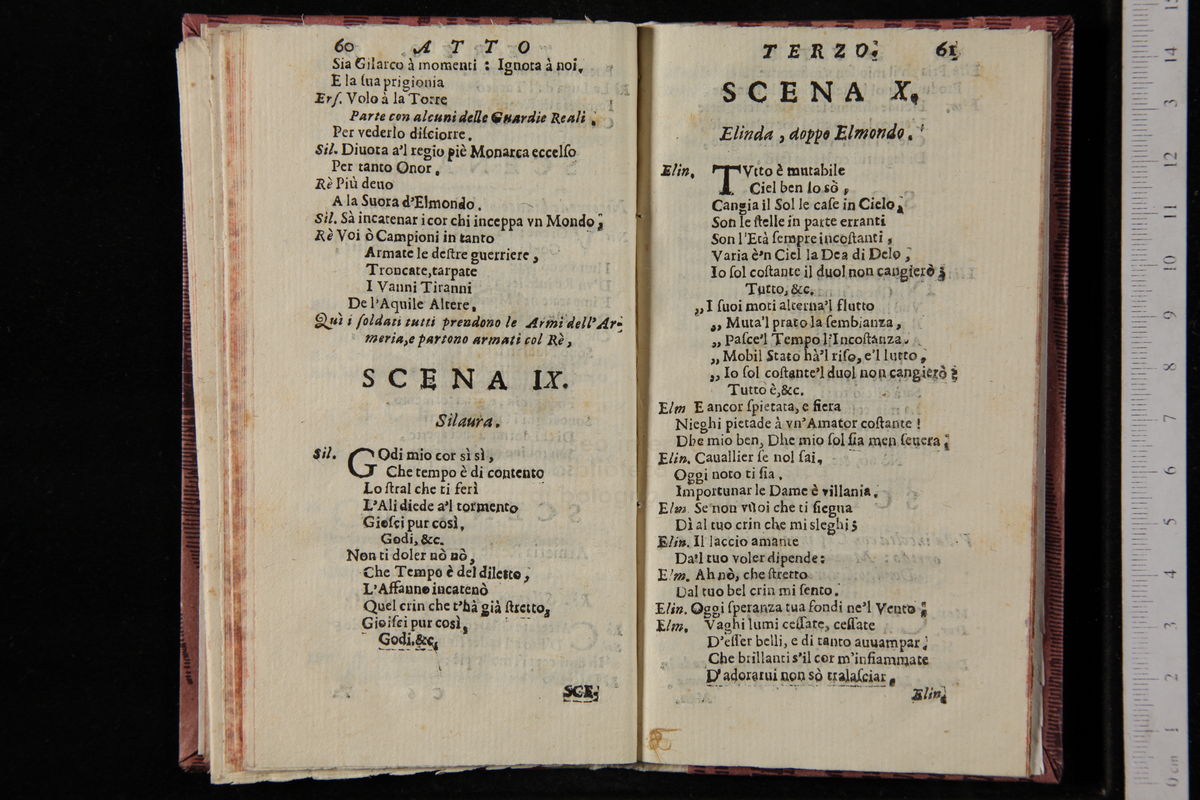 60 ATTO
Sia Gilarco à momenti : Ignota à noi,
E la sua prigionia
Ers. Volo à la Torre
Parte con alcuni delle Guardie Reali.
Per vederlo disciorre.
Sil. Diuota a'l regio piè Monarca eccelso
Per tanto Onor.
Rè Più deuo
A la Suora d'Elmondo.
Sil. Sà incatenar i cor chi inceppa vn Mondo;
Rè Voi ò Campioni in tanto
Armate le destre guerriere,
Troncate, tarpate
I Vanni Tiranni
De l'Aquile Altere.
Quì i soldati tutti prendono le Armi dell'Ar-
meria, e partono armati col Rè,
SCENA IX.
Silaura.
Sil. GOdi mio cor sì sì,
Che tempo è di contento
Lo stral che ti ferì
L'Ali diede a'l tormento
Gioisci pur così,
Godi, &c.
Non ti doler nò nò,
Che Tempo è del diletto,
L'Affanno incatenò
Quel crin che t'hà già stretto,
Gioisci pur così,
Godi, &c.
SCE-
TERZO. 61
SCENA X.
Elinda, doppo Elmondo.
Elin. TVtto è mutabile
Ciel ben lo sò,
Cangia il Sol le case in Cielo,
Son le stelle in parte erranti
Son l'Età sempre incostanti,
Varia è'n Ciel la Dea di Delo,
Io sol costante il duol non cangierò;
Tutto, &c.
„I suoi moti alterna'l flutto
„ Muta'l prato la sembianza,
„ Pasce'l Tempo l'Incostanza.
„ Mobil Stato hà'l riso, e'l lutto,
„ Io sol costante'l duol non cangierò;
Tutto è, &c.
Elm E ancor spietata, e fiera
Nieghi pietade à vn'Amator costante!
Dhe mio ben, Dhe mio sol sia men seuera;
Elin. Cauallier se nol sai,
Oggi noto ti sia.
Importunar le Dame è villania.
Elm Se non vuoi che ti siegua
Dì al tuo crin che mi sleghi;
Elin. Il laccio amante
Da'l tuo voler dipende:
Elm. Ah nò, che stretto
Dal tuo bel crin mi sento.
Elin. Oggi speranza tua fondi ne'l Vento;
Elm. Vaghi lumi cessate, cessate
D'esser belli, e di tanto auuampar;
Che brillanti s'il cor m'infiammate
D'adorarui non sò tralasciar,
Elin.